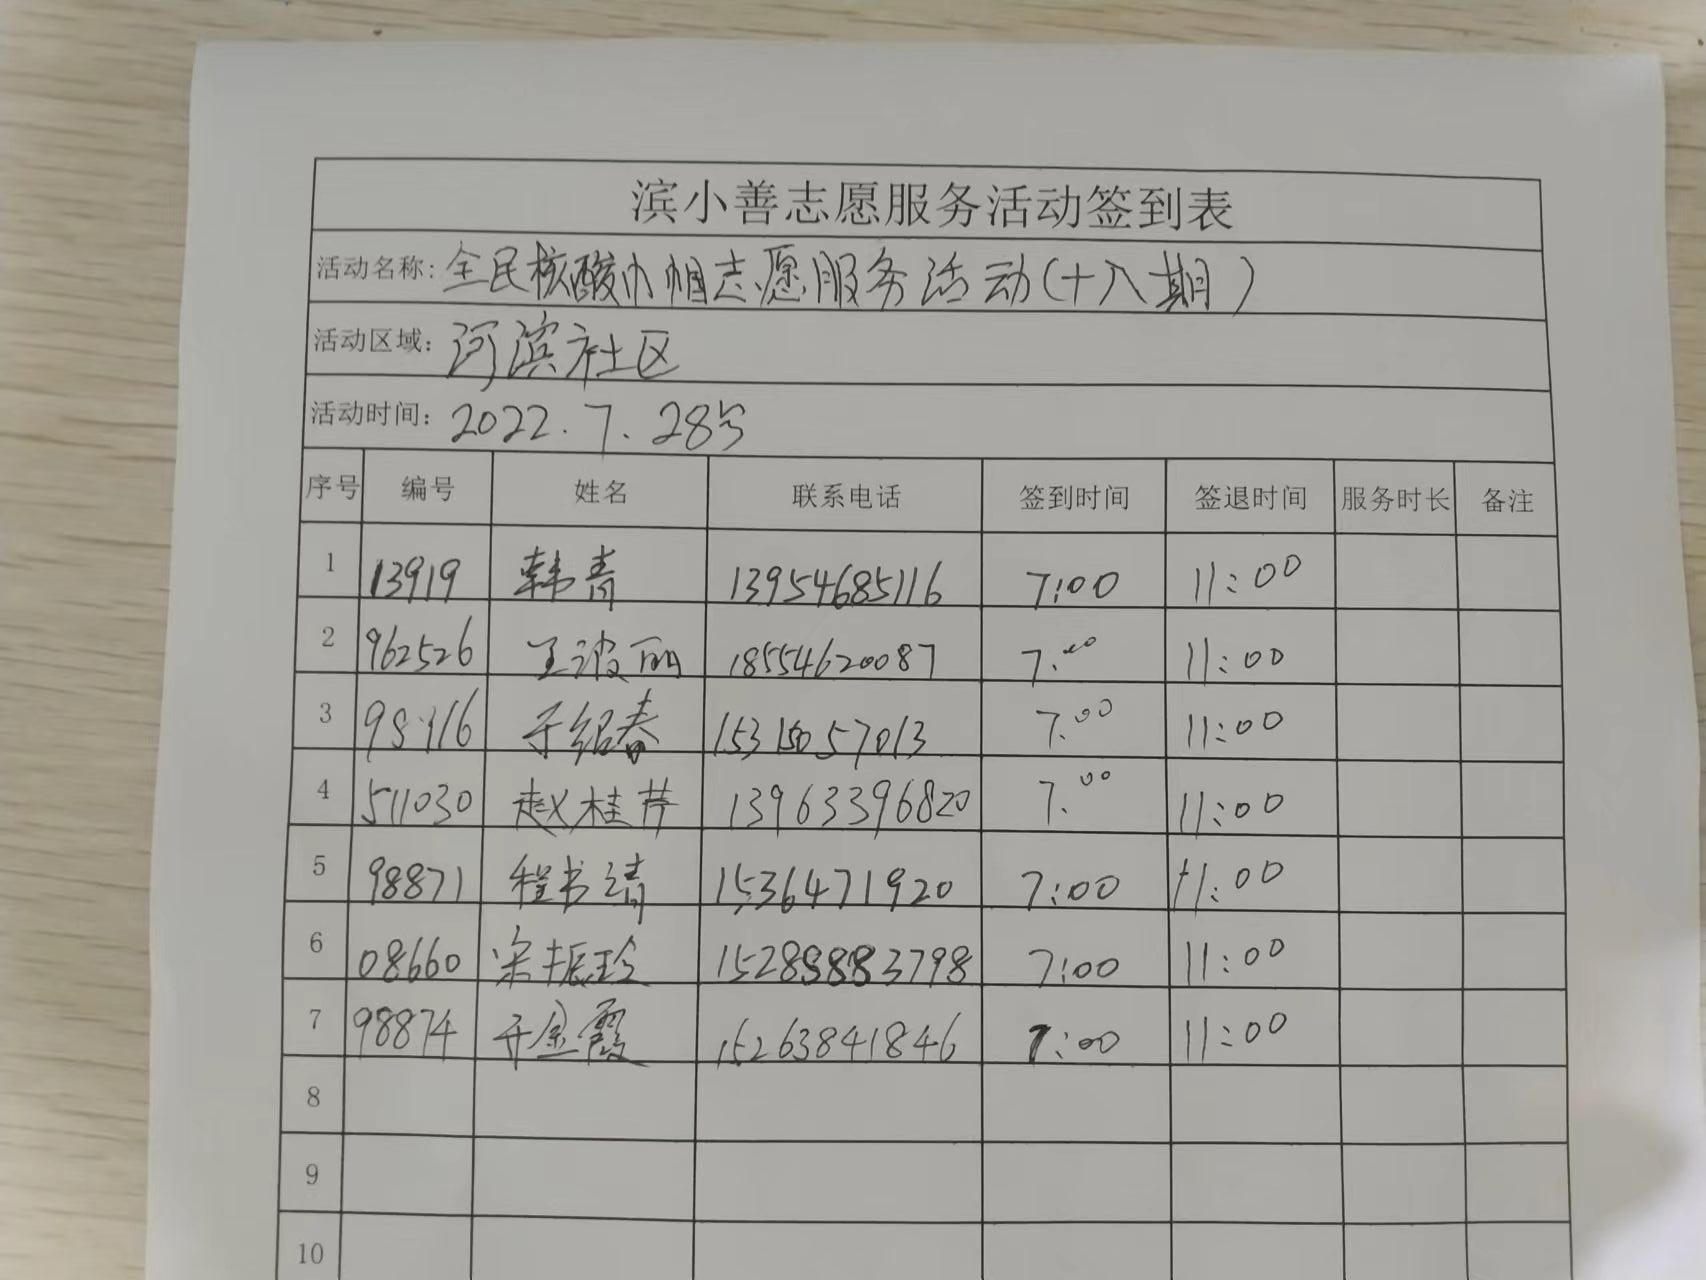 滨小善志愿服务活动签到表
活动名称: 全民核酸巾帼志愿服务活动(十八期)
活动区域: 河滨社区
活动时间: 2022.7.28号
序号 编号 姓名 联系电话 签到时间 签退时间 服务时长 备注
1 13919 韩青 13954685116 7:00 11:00
2 962526 王波丽 18554620087 7:00 11:00
3 于绍春 7:00 11:00
4 511030 赵桂芹 13963396820 7:00 11:00
5 98871 程书靖 1536471920 7:00 11:00
6 08660 宋振玲 15288883798 7:00 11:00
7 98874 于金霞 15263841846 7:00 11:00
8
9
10